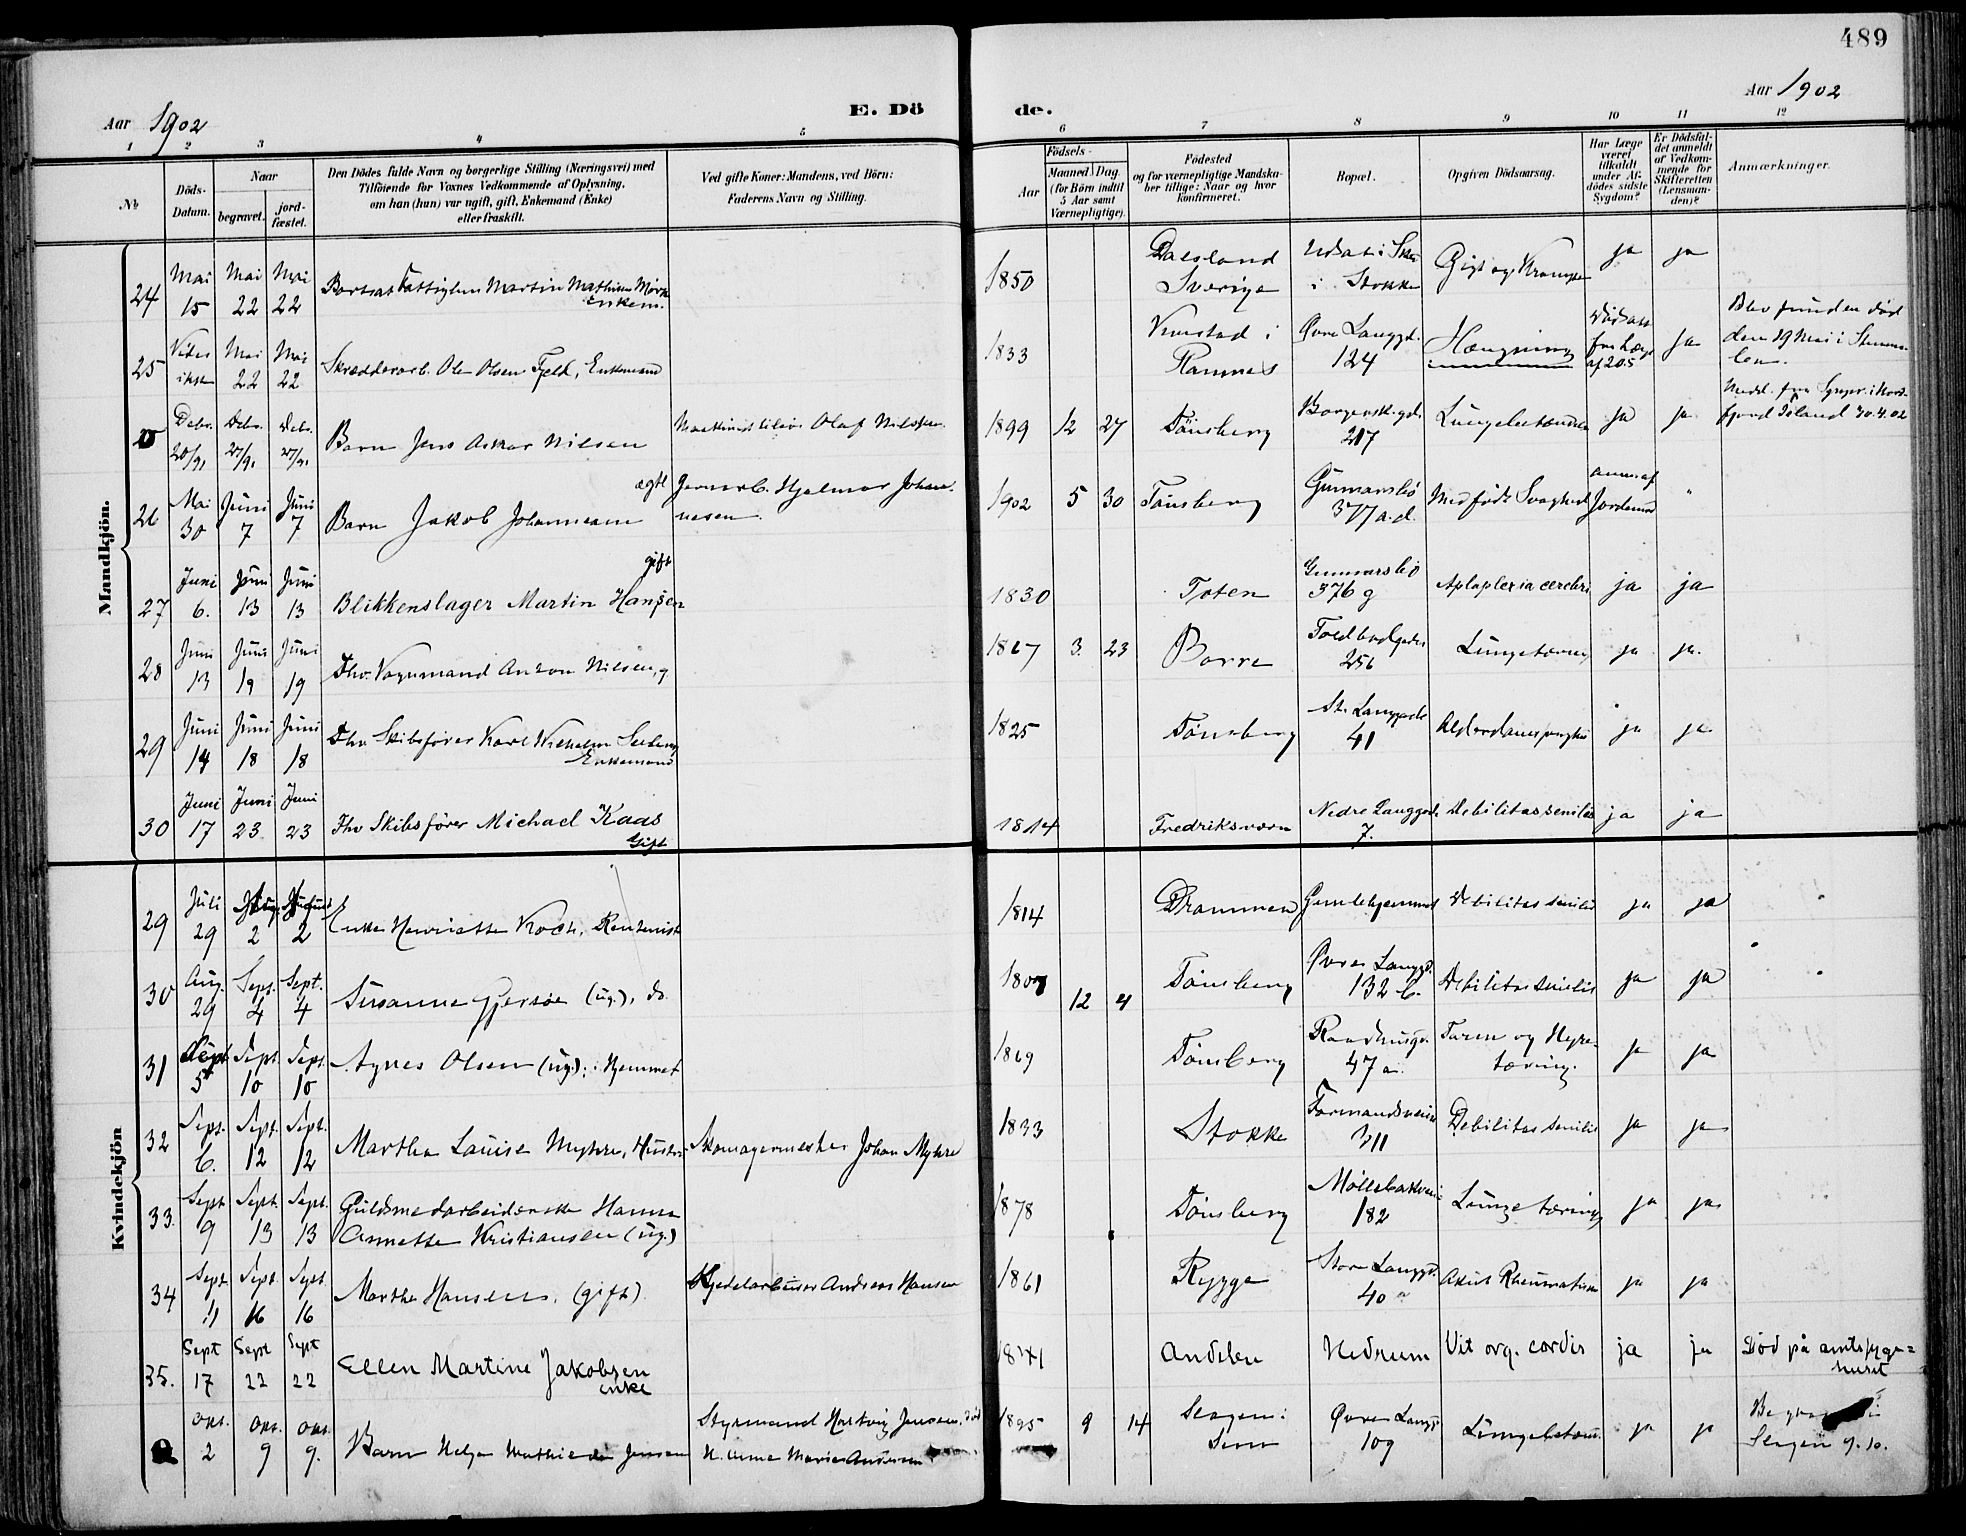 489
Aar 1902
E. Dö
de.
Aar 1902
1 2 3 4 5 6 7 8 9 10 11 12
No
Döds-
Datum.
Naar
begravet.
jord-
fæstet.
Den Dödes fulde Navn og borgerlige Stilling (Næringsvei) med
Tilföiende for Voxnes Vedkommende af Oplysning,
om han (hun) var ugift, gift, Enkemand (Enke)
eller fraskilt.
Ved gifte Koner: Mandens, ved Börn:
Faderens Navn og Stilling.
Födsels-
Aar
Maaned Dag
(for Börn indtil
5 Aar samt
Værnepligtige)
Födested
og for værnepligtige Mandska-
ber tillige: Naar og hvor
konfirmeret.
Bopæl.
Opgiven Dödsaarsag.
Har Læge
været
tilkaldt
under Af-
dödes sidste
Sygdom?
Er Dödsfal-
det anmeldt
af Vedkom-
mende for
Skifteretten
(Lensman-
den)?
Anmærkninger.
Mandkjön.
24 Mai 15 Mai 22 Mai 22 Martin Mathisen Enkem. 1850 Dalsland Sverige i Stokke Gigt og Krampe ja ja
25 Mai 22 Mai 22 Ole Olsen Fjeld, Enkemand 1833 Ramnes Øvre Langgd. 124 Hængning ja Blev funden död
den 19 Mai i
Debr. 20/91 Debr. 27/91 Debr. 27/91 Barn Jens Oskar Nilsen Olaf Nilsen 1899 12 27 Tönsberg 217 Lungebetændelse ja ja Island 30.4.02
26 Mai 30 Juni 7 Juni 7 Barn Jakob Johannesen ægte Hjalmar Johan-
nesen. 1902 5 30 Tönsberg Gunnarsbö 377 a.d. Medfödt Svaghed anm. af Jordemor "
27 Juni 6. Juni 13 Juni 13 Blikkenslager Martin Hansen gift 1830 Toten Gunnarsbö 376 g Aploplexia cerebri ja ja
28 Juni 13 Juni 19 Juni 19 Fhv. Vognmand Anton Nilsen, g 1867 3 23 Borre Toldbodgaden 256 Lungetæring ja ja.
29 Juni 14 Juni 18 Juni 18 Fhv Skibsförer Karl Wilhelm Enkemand 1825 Tönsberg St. Langgade 41 Alderdomssvaghed ja ja
30 Juni 17 Juni 23 Juni 23 Fhv Skibsförer Michael Kaas Gift 1814 Fredriksværn Nedre Langgad. 7. Debilitas senilis ja ja
Kvindekjön
29 Juli 29 Aug. 2 August 2 Enke Henriette Koch, Rentenist 1814 Drammen Gamlehjemmet Debilitas senilis ja ja
30 Aug. 29 Sept. 4 Sept. 4 Susanne Gjersöe (ug.), do. 12 4 Tönsberg Øvre Langgd. 132 b. Debilitas senilis ja ja
31 Sept 5 Sept 10 Sept. 10 Agnes Olsen (ug.), i Hjemmet 1869 Tönsberg Raadhusgd. 47 a. Tarm og Nyre-
tæring. ja ja
32 Sept. 6. Sept. 12 Sept. 12 Martha Louise Myhre, Hustru Skomagermester Johan Myhre 1833 Stokke Formandsveien 311 Debilitas senilis ja ja
33. Sept 9 Sept. 13 Sept. 13 Guldsmedarbeiderske Hanna
Annette Kristiansen (ug.) 1878 Tönsberg Möllebakvei 182 Lungetæring ja ja
34 Sept. 11 Sept. 16 Sept. 16 Martha Hansen, (gift) Kjedelarbeider Andreas Hansen 1861 Rygge Store Langgd. 40 a Akut Rheumatisme ja ja
35. Sept 17 Sept 22 Sept 22 Ellen Martine Jakobsen enke 1841 Andebu Hedrum Vit org. cordis ja ja Död på amtssyge=
huset
Okt. 2 Okt. 9 Okt. 9. Barn Helga Mathilde Jensen Styrmand Hartvig Jensen, död
H. Anna Marie Andersen 1895 9 14 Slagen: Sem Øvre Langgd 109 Lungebetænd. ja ja Slagen 9.10.